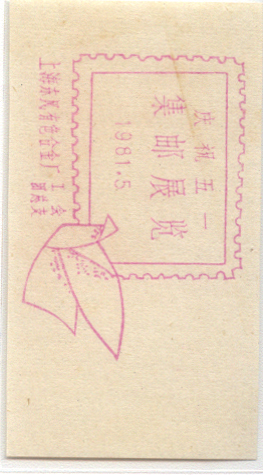 庆祝五一
集邮展览
1981.5
上海东风有色合金厂 工会
团总支